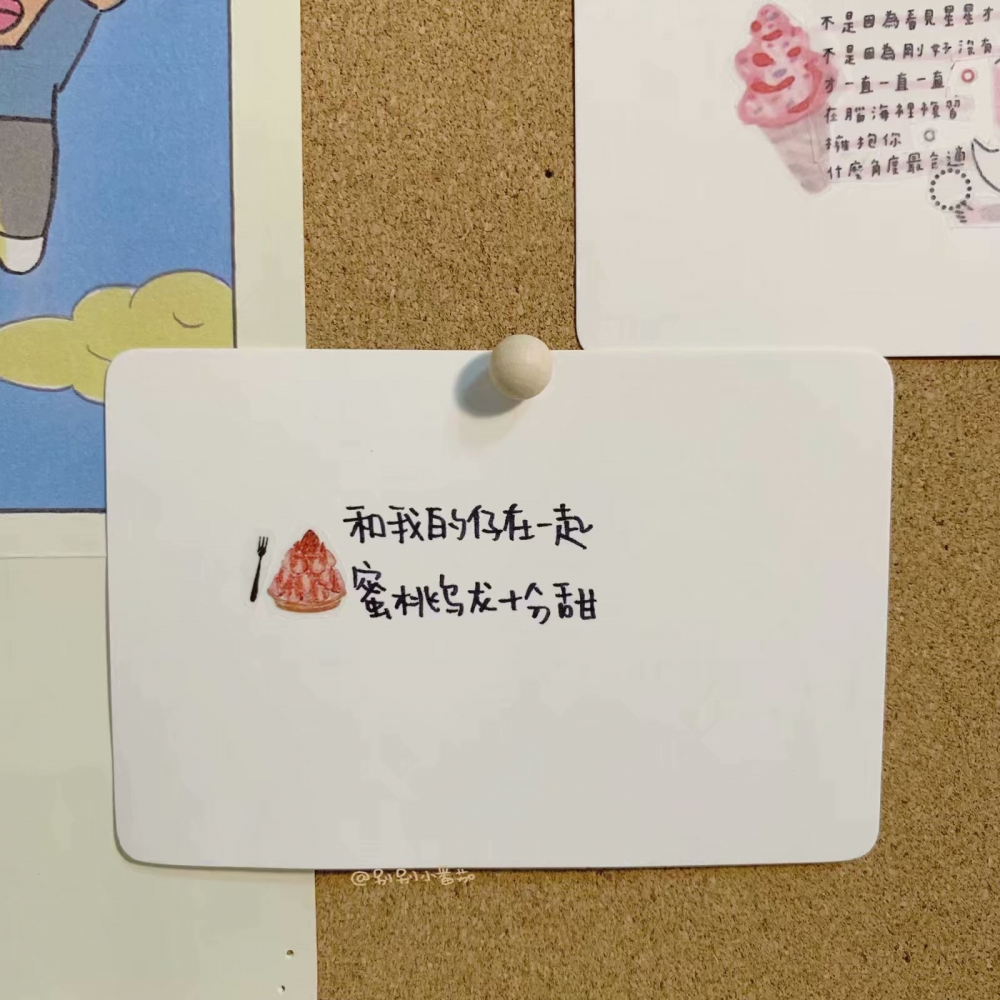 不是因為看見星星才
不是因為剛好沒有
才一直一直一直
在腦海裡複習
擁抱你
什麼角度最合適
和我的仔在一起
蜜桃乌龙十分甜